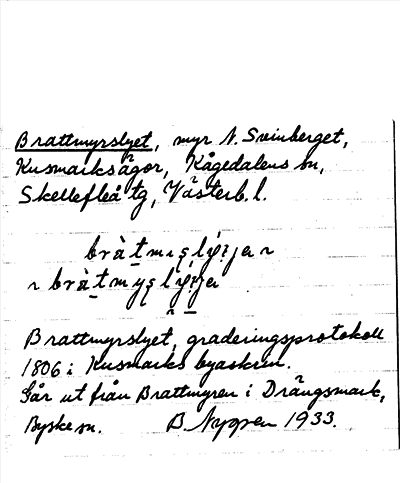 Brattmyrslyet, myr N. Svinberget,
Kusmarksågor, Kågedalens sn,
Skellefteå tg, Västerb. l.
Brattmyrslyet, graderingsprotokoll
1806 i Kusmarks byaskrin.
Går ut från Brattmyren i Drängsmark,
Byske sn. B. Nygren 1933.